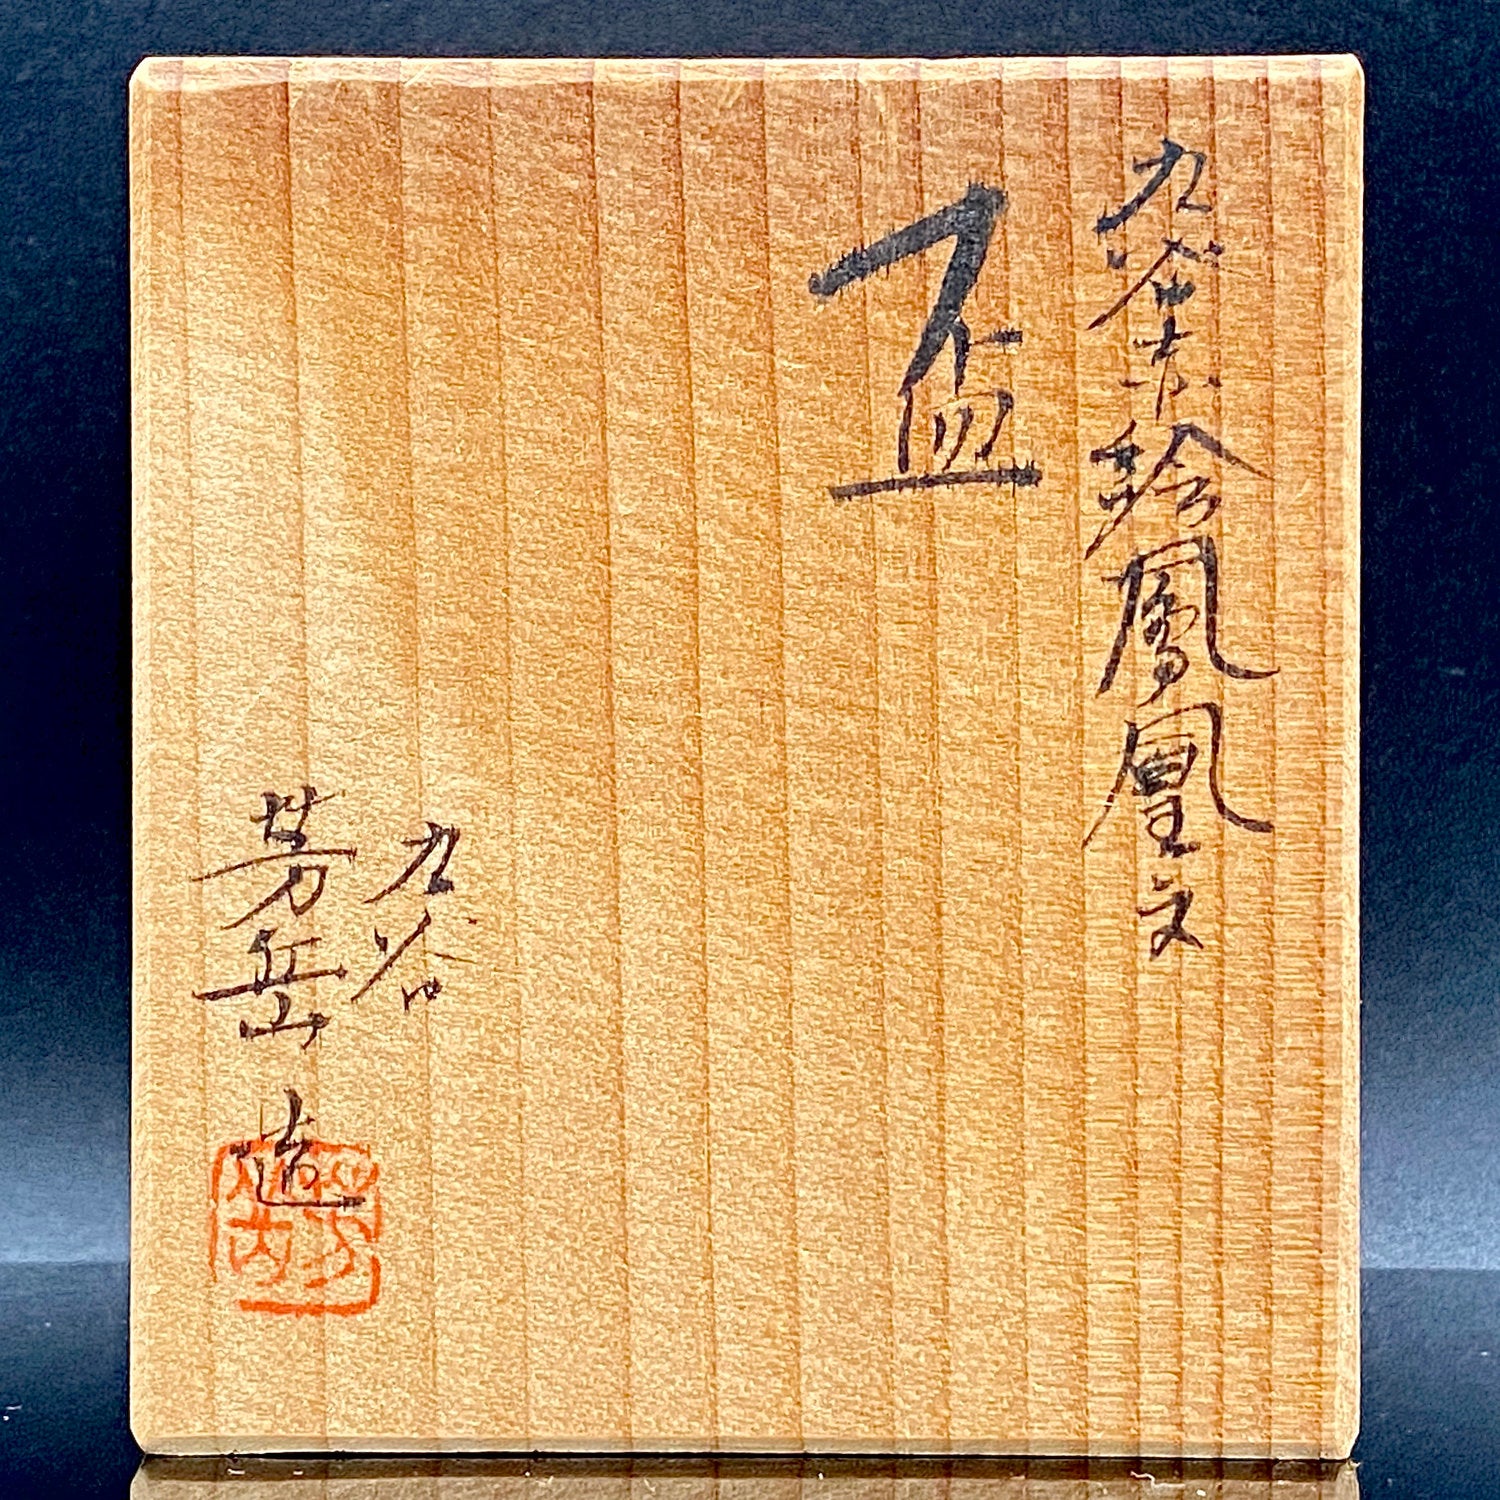 九谷赤絵鳳凰文
盃
九谷
芳岳造
芳岳